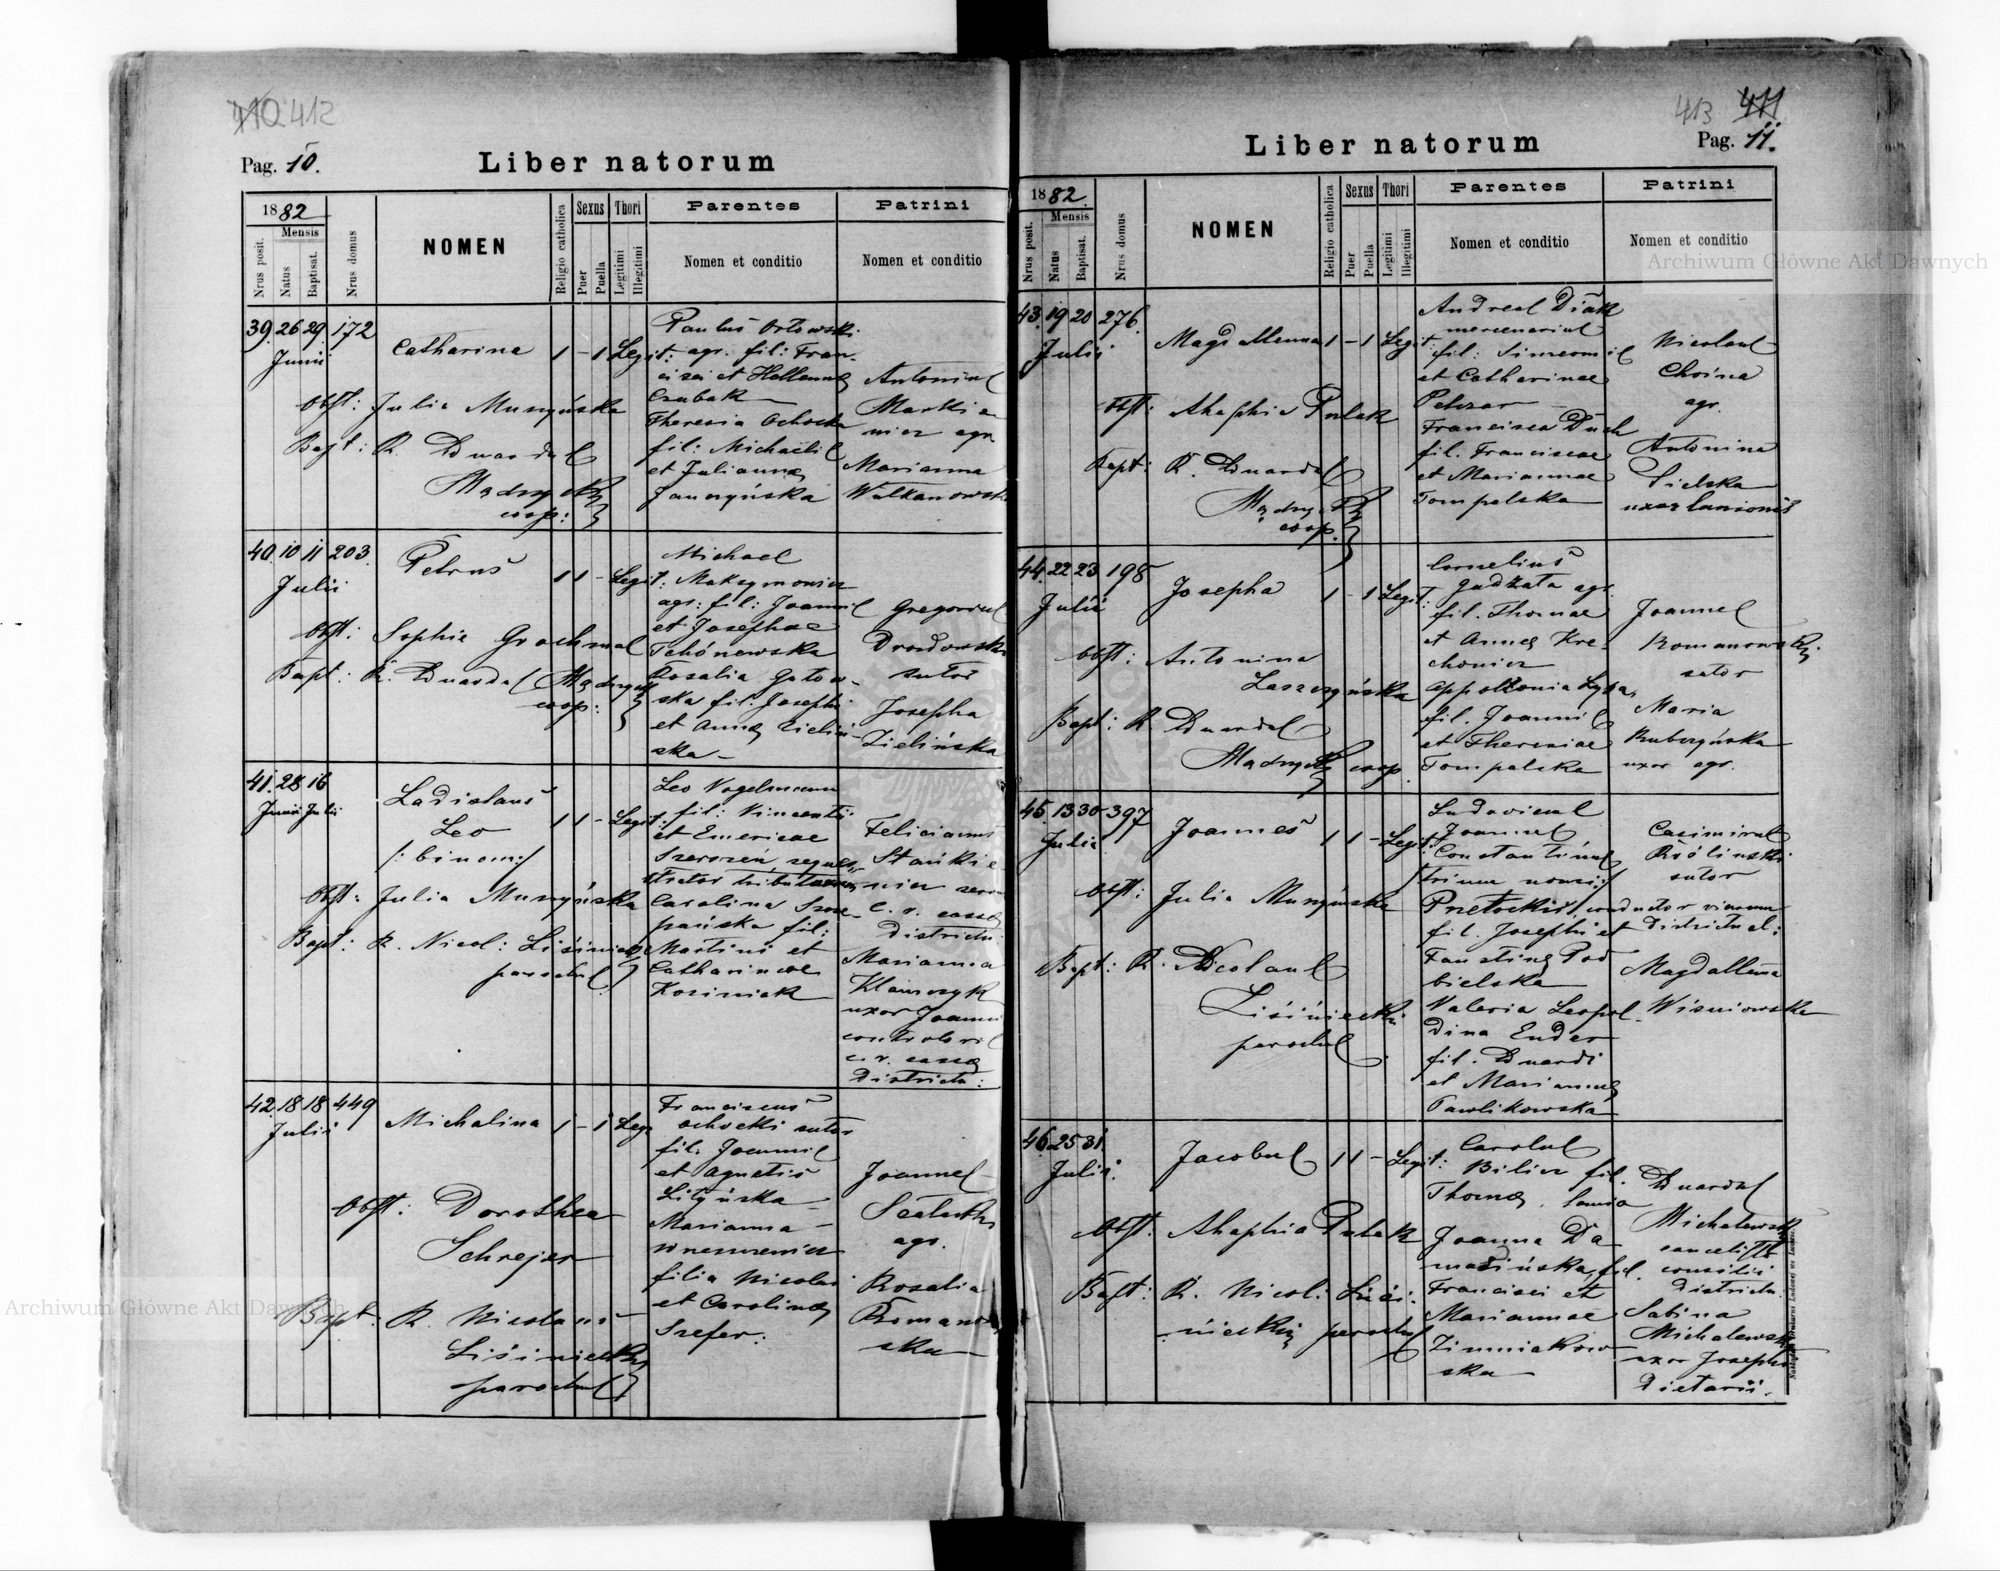 410 412
Pag. 10.
Liber natorum
1882
Mensis
Nrus posit.
Natus
Baptisat.
Nrus domus
NOMEN
Religio catholica
Sexus
Puer
Puella
Thori
Legitimi
Illegitimi
Parentes
Nomen et conditio
Patrini
Nomen et conditio
39. 26 29. 172
Junii
Catharina 1 - 1 Legit:
obst: Julia Muszyńska
Bapt: R. Eduardus
Mądrycki
coop:
Paulus Orłowski
agr. fil: Fran-
cisci et Hellenae
Czubak
Theresia Ochocka
fil: Michaelis
et Julianna
Janczyńska
Antonius
Markie
wicz agr.
Marianna
Wałkanowska
40. 10 11 203.
Julii
Petrus 1 1 - Legit.
obst: Sophia Grochmal
Bapt: R. Eduardus Mądrycki
coop:
Michael
Maksymowicz
agr: fil: Joannis
et Josephae
Rosalia Gutow-
ska fil. Josephi
et Anna Zieliń-
ska -
Gregorius
Drozdowski
sutor
Josepha
Zielińska
41. 28 16
Junii Julii
Ladislaus
Leo
/: binom:/
1 1 - Legit.
obst: Julia Muszyńska
Bapt: R. Nicol: Liśiniecki
parochus
Leo Vogelmann
fil: Vincentii
et Emericae
Szerszeń seques-
trator tributorum
Carolina Szcze-
pańska fil:
Martini et
Catharinae
Kosiniak
Felicianus
Stańkie-
wicz
c. r. cassae
Districtu:
Marianna
Klawczyk
uxor Joannis
controloris
c. r. cassae
Districtu:
42. 18 18 449
Julii
Michalina 1 - 1 Legi
obst: Dorothea
Schrejer
Bapt: R. Nicolaus
Liśiniecki
parochus
Franciscus
Ochocki sutor
fil. Joannis
et Agnetis
Lityńska
Marianna
filia Nicolai
et Carolinae
Szefer.
Joannes
agr.
Rosalia
Romanow
ska
413 411
Pag. 11.
Liber natorum
1882.
Mensis
Nrus posit.
Natus
Baptisat.
Nrus domus
NOMEN
Religio catholica
Sexus
Puer
Puella
Thori
Legitimi
Illegitimi
Parentes
Nomen et conditio
Patrini
Nomen et conditio
43. 19 20 276.
Julii
Magdallenna 1 - 1 Legit:
obst: Ahaphia Pulak
Bapt: R. Eduardus
Mądrycki
coop.
Andreas Diak
mercenarius
fil: Simeonis
et Catharinae
Pelczar
Francisca Duch
fil. Franciscae
et Mariannae
Tompalska
Nicolaus
Choina
agr.
Antonina
Sielska
uxor lanionis
44. 22 23 198
Julii
Josepha 1 - 1 Legit.
obst: Antonina
Laszczyńska
Bapt: R. Eduardus
Mądrycki coop.
Cornelius
Gudzata agr.
fil. Thomae
et Annae Kre-
chowicz
Appollonia Łysa,
fil. Joannis
et Theresiae
Tompalska
Joannes
Romanowski.
sutor
Maria
Rubczyńska
uxor agr.
45. 13 30 397
Julii
Joannes 1 1 - Legit.
obst: Julia Muszyńska
Bapt: R. Nicolaus
Liśiniecki
parochus
Ludovicus
Joannes
Constantinus
/trium nomin:/
conductor viarum
fil. Josephi et
Faustina Pod
bielska
Valeria Leopol-
dina Ender
fil. Eduardi
et Mariannae
Pawlikowska
Casimirus
Królinski
sutor
Districtual:
Magdallena
Wiśniowska
46. 25 31.
Julii.
Jacobus 1 1 - Legit:
obst. Ahaphia Pulak
Bapt: R. Nicol: Liśi-
niecki parochus
Carolus
Bilicz fil.
Thomae, lanio
Joanna Da
maśińska, fil.
Francisci et
Mariannae
Zimniakow-
ska
Eduardus
Michalewski
cancelista
consilii
Districtu.
Sabina
Michalewska
uxor Josephi
Dietarii.
Archiwum Główne Akt Dawnych
Archiwum Główne Akt Dawnych